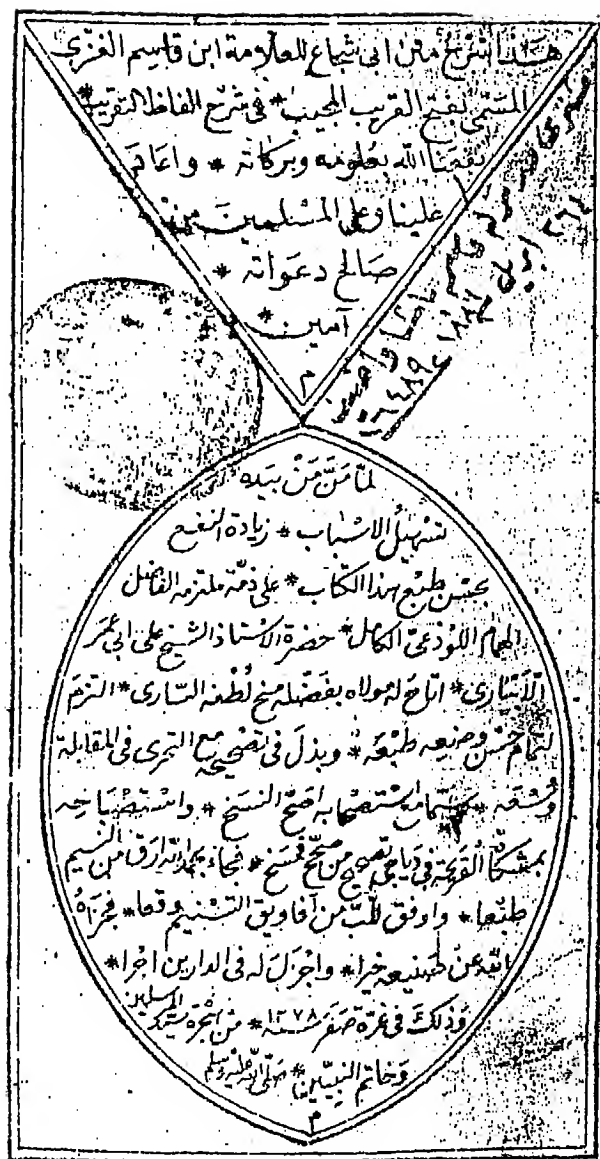 هذا شرح متن ابى شجاع للعلامة ابن قاسم الغزى
المسمى بفتح القريب المجيب * فى شرح الفاظ التقريب *
نفعنا الله بعلومه وبركاته * واعاد
علينا وعلى المسلمين من
صالح دعواته *
آمين *
م
قاسم باشا
٢٦ ابريل ١٨٨٦
لما من من بيده
تسهيل الاسباب * زيادة النفع
بحسن طبع هذا الكتاب * على ذمة ملتزمه الفاضل
الهمام اللوذعى الكامل * حضرة الاستاذ الشيخ على ابى عمر
الانبارى * اتاح له مولاه بفضله منح لطفه السارى * التزم
تمام حسن وضيعه طبعه * وبذل فى تصحيحه مع التحرى فى المقابلة
وسعه * استصحابه اصح النسخ * واستصباحه
بمشكاة القريحة فى دياجى من * فجاء بحمد الله ارق من النسيم
طبعا * واوفق للب من افاويق التسنيم وقعا * فجزاه
الله عن صنيعه خيرا * واجزل له فى الدارين اجرا *
وذلك فى غرة صفر سنة ١٢٧٨ * من هجرة سيد المرسلين
وخاتم النبيين * صلى الله عليه وسلم
م